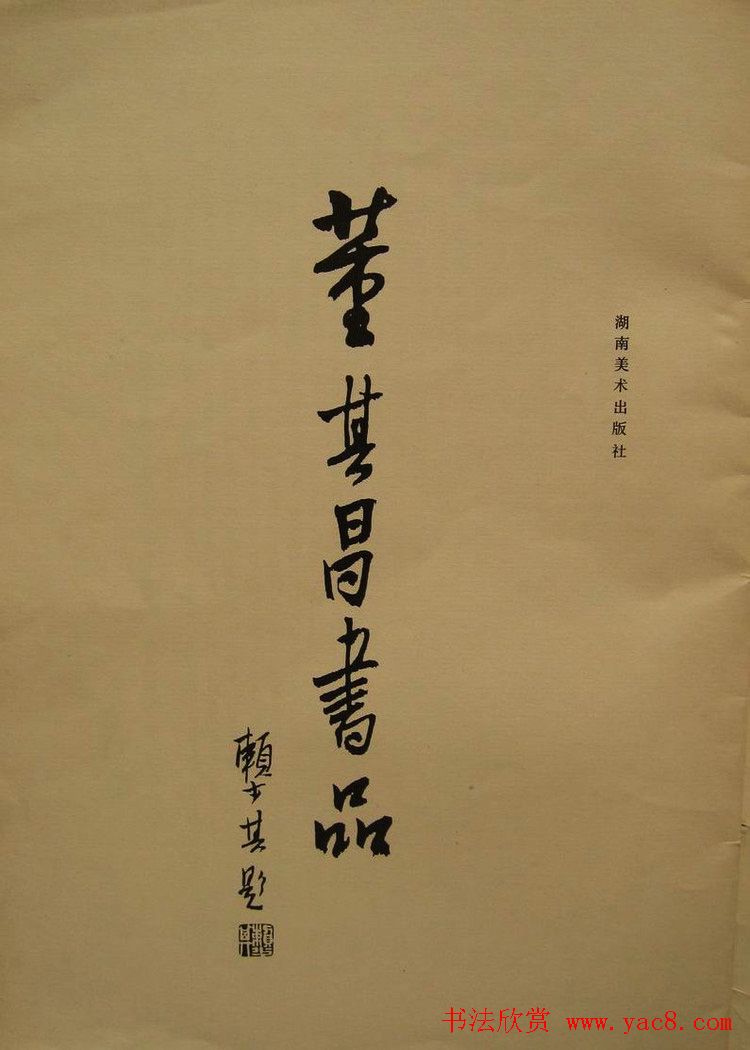 湖南美术出版社
董其昌書品
賴少其题
书法欣赏 www.yac8.com